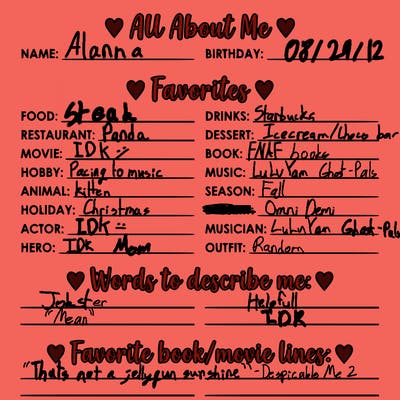 All About Me
NAME: Alanna BIRTHDAY: 08/29/12
Favorites
FOOD: Steak DRINKS: Starbucks
RESTAURANT: Panda DESSERT: Icecream/Choco bar
MOVIE: IDK :/ BOOK: FNAF books
HOBBY: Pacing to music MUSIC: LuLuYam Ghost-Pals
ANIMAL: kitten SEASON: Fall
HOLIDAY: Christmas Omni Demi
ACTOR: IDK :/ MUSICIAN: LuLuYam Ghost-Pals
HERO: IDK Mom OUTFIT: Random
Words to describe me:
Jokster Helpfull
"Mean" IDK
Favorite book/movie lines:
"Thats not a jellygun sunshine" -Despicable Me 2